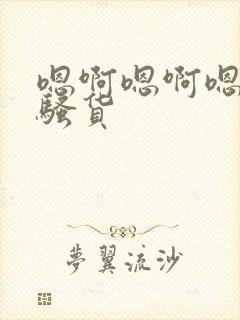 嗯啊嗯啊嗯
骚货
梦翼流沙